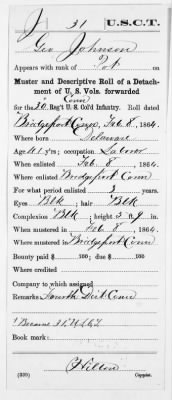 J 31 U.S.C.T.
Geo Johnson
Appears with rank of Pvt
Muster and Descriptive Roll of a Detach-
ment of U. S. Vols. forwarded
Conn
for the 30 Reg't U. S. Col'd Infantry. Roll dated
Bridgeport Conn, Feb. 8, 1864.
Where born Delaware
Age 41 y'rs; occupation Laborer
When enlisted Feb. 8, 1864.
Where enlisted Bridgeport Conn
For what period enlisted 3 years.
Eyes Blk; hair Blk
Complexion Blk; height 5 ft. 9 in.
When mustered in Feb. 8, 1864.
Where mustered in Bridgeport Conn
Bounty paid $ 100; due $ 100
Where credited
Company to which assigned
Remarks: Fourth Dist Conn
† Became 31, U.S.C.T.
Book mark:
(339) Copyist.